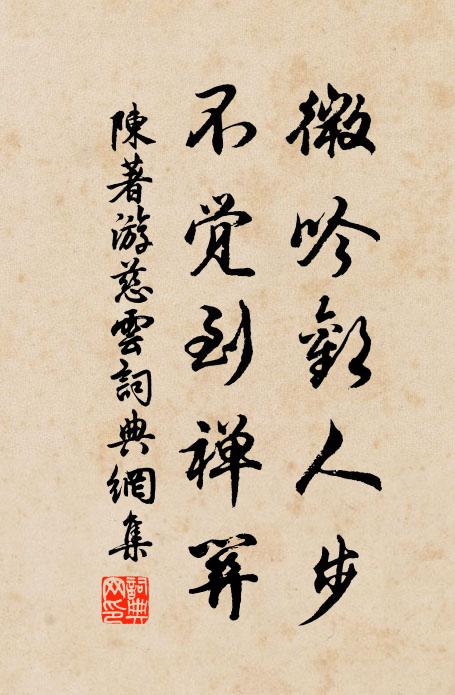 微吟勸人步
不觉到禅関
陳著游慈雲詞典網集
詞典网印